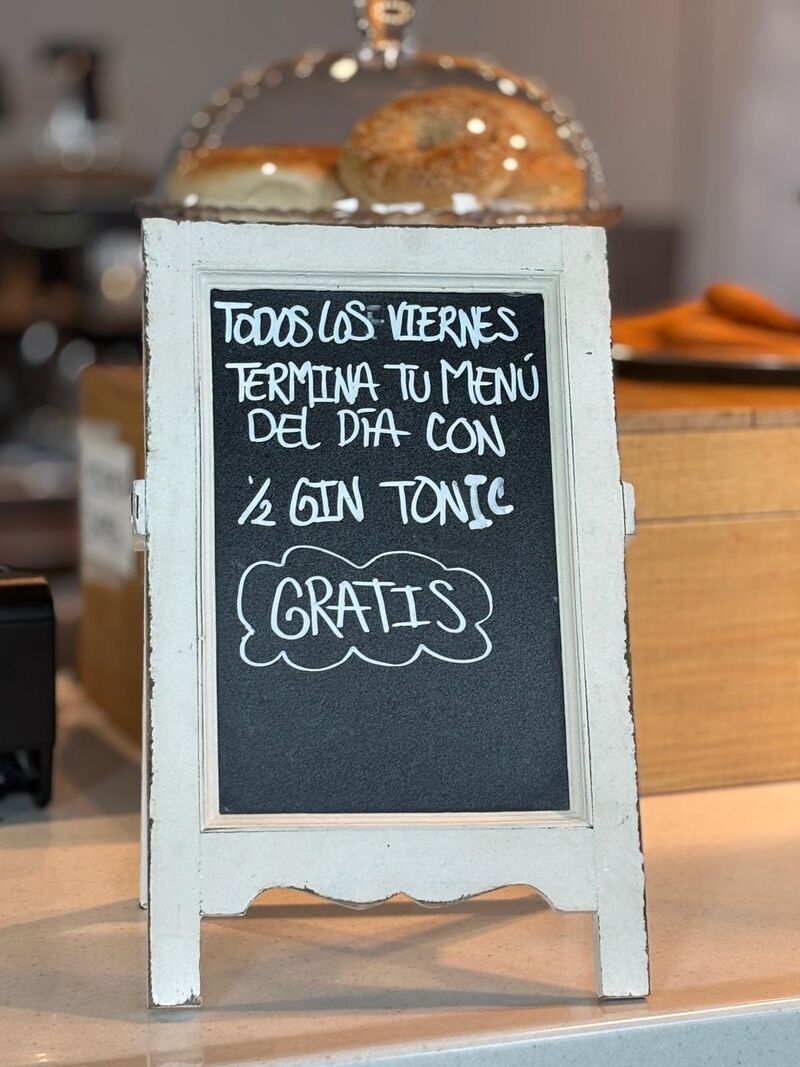 TODOS LOS VIERNES
TERMINA TU MENÚ
DEL DÍA CON
1/2 GIN TONIC
GRATIS